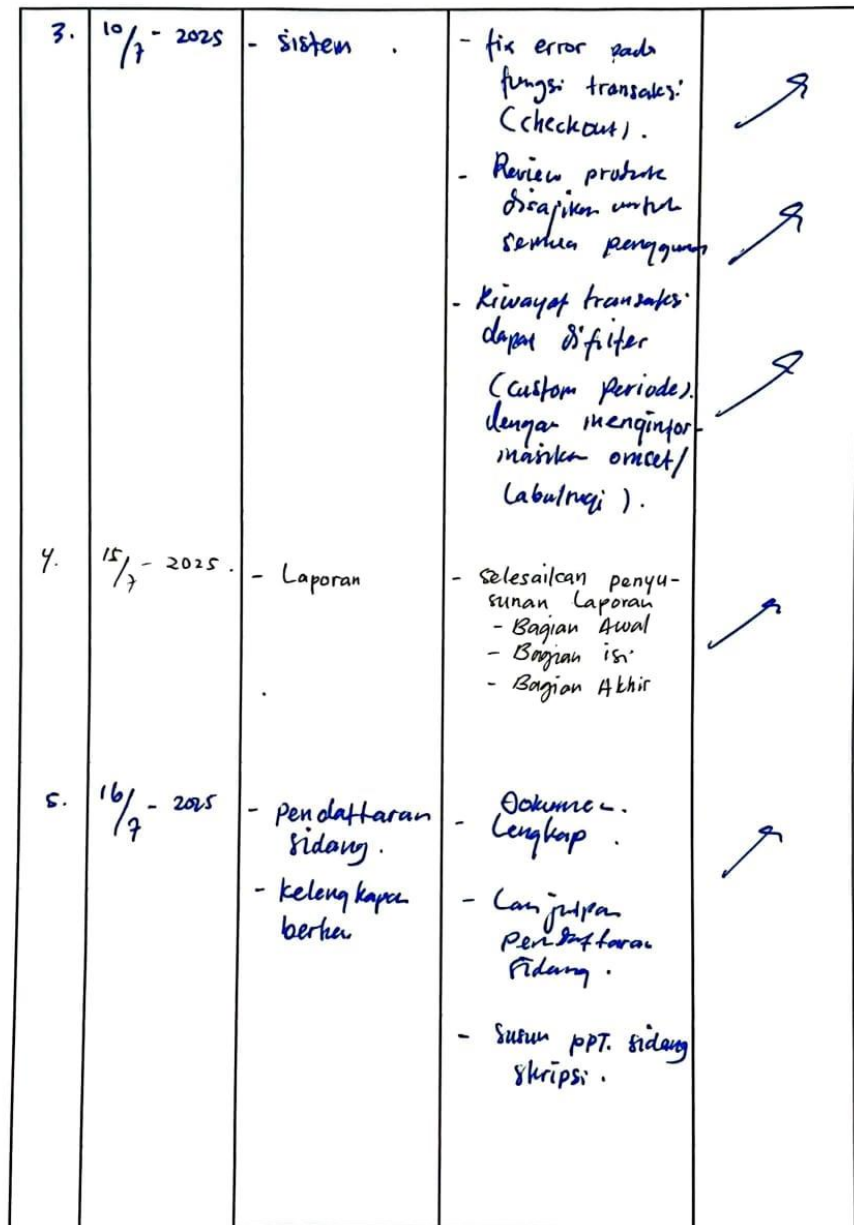 3.
10/7 - 2025
- sistem .
- fix error pada
fungsi transaksi
(checkout).
- Review produk
disajikan untuk
semua pengguna
- Riwayat transaksi
dapat difilter
(custom periode).
dengan menginfor-
masikan omset/
laba/rugi ).
4.
15/7 - 2025 .
- Laporan
- Selesaikan penyu-
sunan Laporan
- Bagian Awal
- Bagian isi
- Bagian Akhir
5.
16/7 - 2025
- Pendaftaran
sidang .
- kelengkapan
berkas
- Dokumen.
Lengkap .
- Lanjutkan
Pendaftaran
sidang .
- Susun PPT. sidang
skripsi .